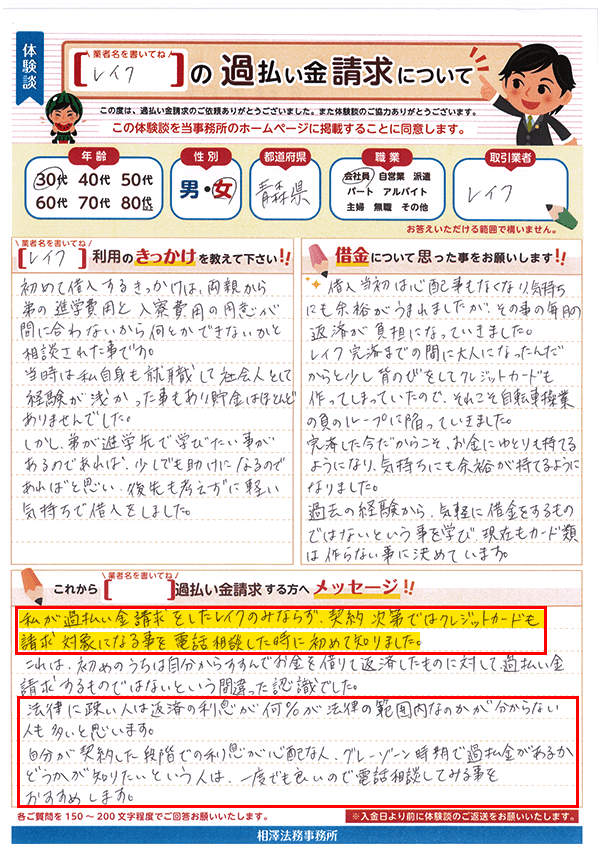 体験談
業者名を書いてね
[レイク]の過払い金請求について
この度は、過払い金請求のご依頼ありがとうございました。また体験談のご協力ありがとうございます。
この体験談を当事務所のホームページに掲載することに同意します。
年齢
30代 40代 50代
60代 70代 80代
性別
男・女
都道府県
青森県
職業
会社員 自営業 派遣
パート アルバイト
主婦 無職 その他
取引業者
レイク
お答えいただける範囲で構いません。
業者名を書いてね
[レイク]利用のきっかけを教えて下さい!!
初めて借入するきっかけは、両親から
弟の進学費用と入寮費用の用意が
間に合わないから何とかできないかと
相談された事です。
当時は私自身も就職して社会人として
経験が浅かった事もあり貯金はほとんど
ありませんでした。
しかし、弟が進学先で学びたい事が
あるのであれば、少しでも助けになるので
あればと思い、後先も考えずに軽い
気持ちで借入をしました。
借金について思った事をお願いします!!
借入当初は心配事もなくなり、気持ち
にも余裕がうまれましたが、その事の年月の
返済が負担になっていきました。
レイク完済までの間に大人になったんだ
からと少し背のびをしてクレジットカードも
作ってしまっていたので、それこそ自転車操業
の負のループに陥っていきました。
完済した今だからこそ、お金にゆとりも持てる
ようになり、気持ちにも余裕が持てるように
なりました。
過去の経験から、気軽に借金をするもの
ではないという事を学び、現在もカード類
は作らない事に決めています。
業者名を書いてね
これから[ ]過払い金請求する方へメッセージ!!
私が過払い金請求をしたレイクのみならず、契約次第ではクレジットカードも
請求対象になる事を電話相談した時に初めて知りました。
これは、初めのうちは自分からすすんでお金を借りて返済したものに対して、過払い金
請求するものではないという間違った認識でした。
法律に疎い人は返済の利息が何%が法律の範囲内なのかが分からない
人も多いと思います。
自分が契約した段階での利息が心配な人、グレーゾーン時期で過払金があるか
どうかが知りたいという人は、一度でも良いので電話相談してみる事を
おすすめします。
各ご質問を150～200文字程度でご回答お願いいたします。
※入金日より前に体験談のご返送をお願いいたします。
相澤法務事務所